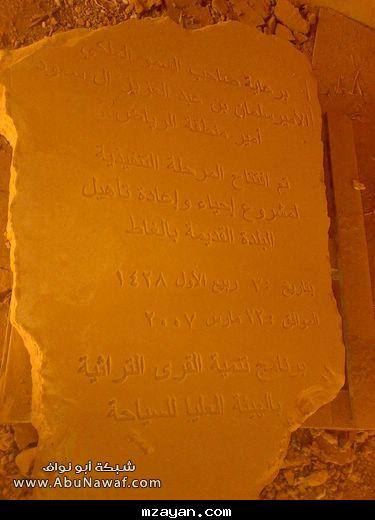 برعاية صاحب السمو الملكي
الأمير سلمان بن عبد العزيز آل سعود
أمير منطقة الرياض
تم افتتاح المرحلة التنفيذية
لمشروع إحياء وإعادة تأهيل
البلدة القديمة بالغاط
بتاريخ : ٣ ربيع الأول ١٤٢٨
الموافق : ٢٢ مارس ٢٠٠٧
برنامج تنمية القرى التراثية
بالهيئة العليا للسياحة
شبكة أبو نواف
www.AbuNawaf.com
mzayan.com